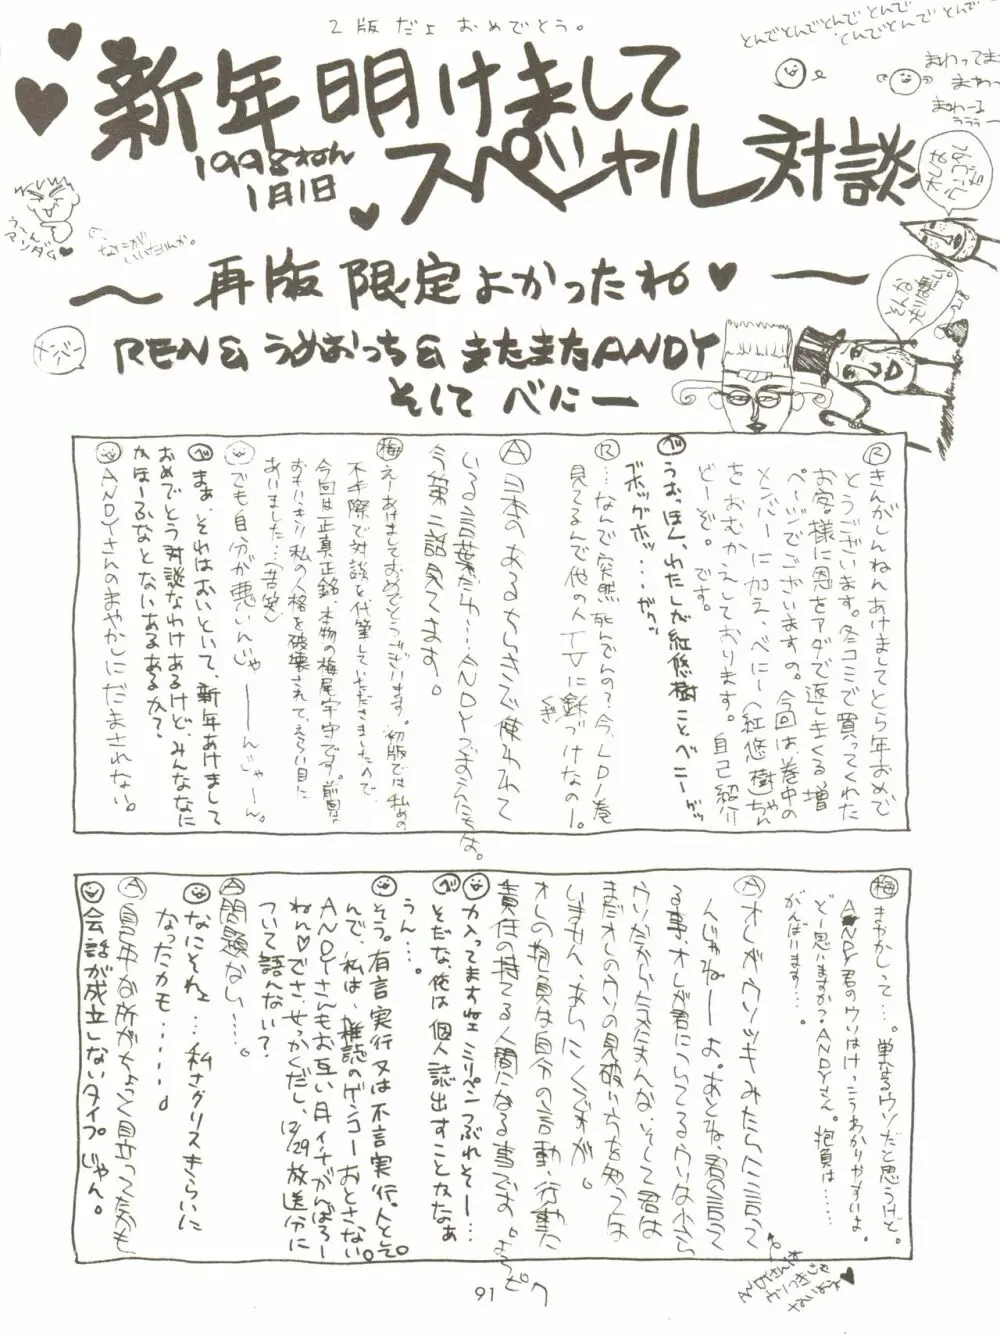 2版だよ おめでとう。
とんでとんでとんで とんで とんで
まわってまわ
まわーる
ラララー
新年明けまして
1998ねん
1月1日
スペシャル対談
う〜ん
マンダム♥
〜 再版限定よかったね♥ 〜
メンバー
REN & うめおっち & またまたANDY
そして べにー
Ⓡきんがしんねんあけましてとら年おめで
とうございます。冬コミで買ってくれた
お客様に恩をアダで返しまくる増
ページでございますの。今回は巻中の
メンバーに加え、べにー(紅悠樹)ちゃん
をおむかえしております。自己紹介
どーぞ。です。
べ うおっほん、わたしが紅悠樹ことべニーゲッ
ボッグホッ・・・ガクッ
Ⓡ…なんで突然死んでんの?今、LD1巻
見てるんで他の人TVに釘づけなのー。
Ⓐ日本のあるべきで使われて
いる言葉だわ…。ANDYおぼえたもよ。
今第二話見てます。
梅 えーあけましておめでとうございます。初版では私めの
不手際で対談を代筆していただきましたので、
今回は正真正銘、本物の梅尾宇宇です。前回は
おもいキリ私の人格を破壊されて、えらい目に
あいました…(苦笑)
でも自分が悪いんじゃーーんじゃーん。
べ まあ、それはおいといて、新年あけまして
おめでとう対談なわけあるけど、みんななに
かほーふなとないあるあるか?
ANDYさんのまやかしにだまされない。
梅 まやかしって…。単なるウソだと思うけど。
ANDY君のウソはけっこうわかりやすいよ。
どー思いますか?ANDYさん。抱負は……
がんばります…。
Ⓐオレがウソツキみたいに言って
んじゃねーーよ。あとね、君の言って
る事、オレが君についてるウソは少ら
ウソだからたまんない。そして君は
まだオレのウソの見破り方を知っては
いませんへ、あいにくですが。
オレの抱負は自分の言動・行動に
責任の持てる人間になる事です。
力入ってますねェ ミリペンつぶれそー…。
べ そだな、俺は個人誌出すことかなぁ
うん…。
そう。有言実行又は不言実行。んとぞ。
んで、私は、雑誌のゲンコーおとさない。
ANDYさんもお互い月イチがんばろー
ねん♡でさ、せっかくだし、12/29放送分に
ついて語んない?
Ⓐ問題ない…。
なにそれェ…私さグリスきらいに
なったかも……。
Ⓐ自年な所がちょっと目立ってたかも
会話が成立しないタイプじゃん。
91